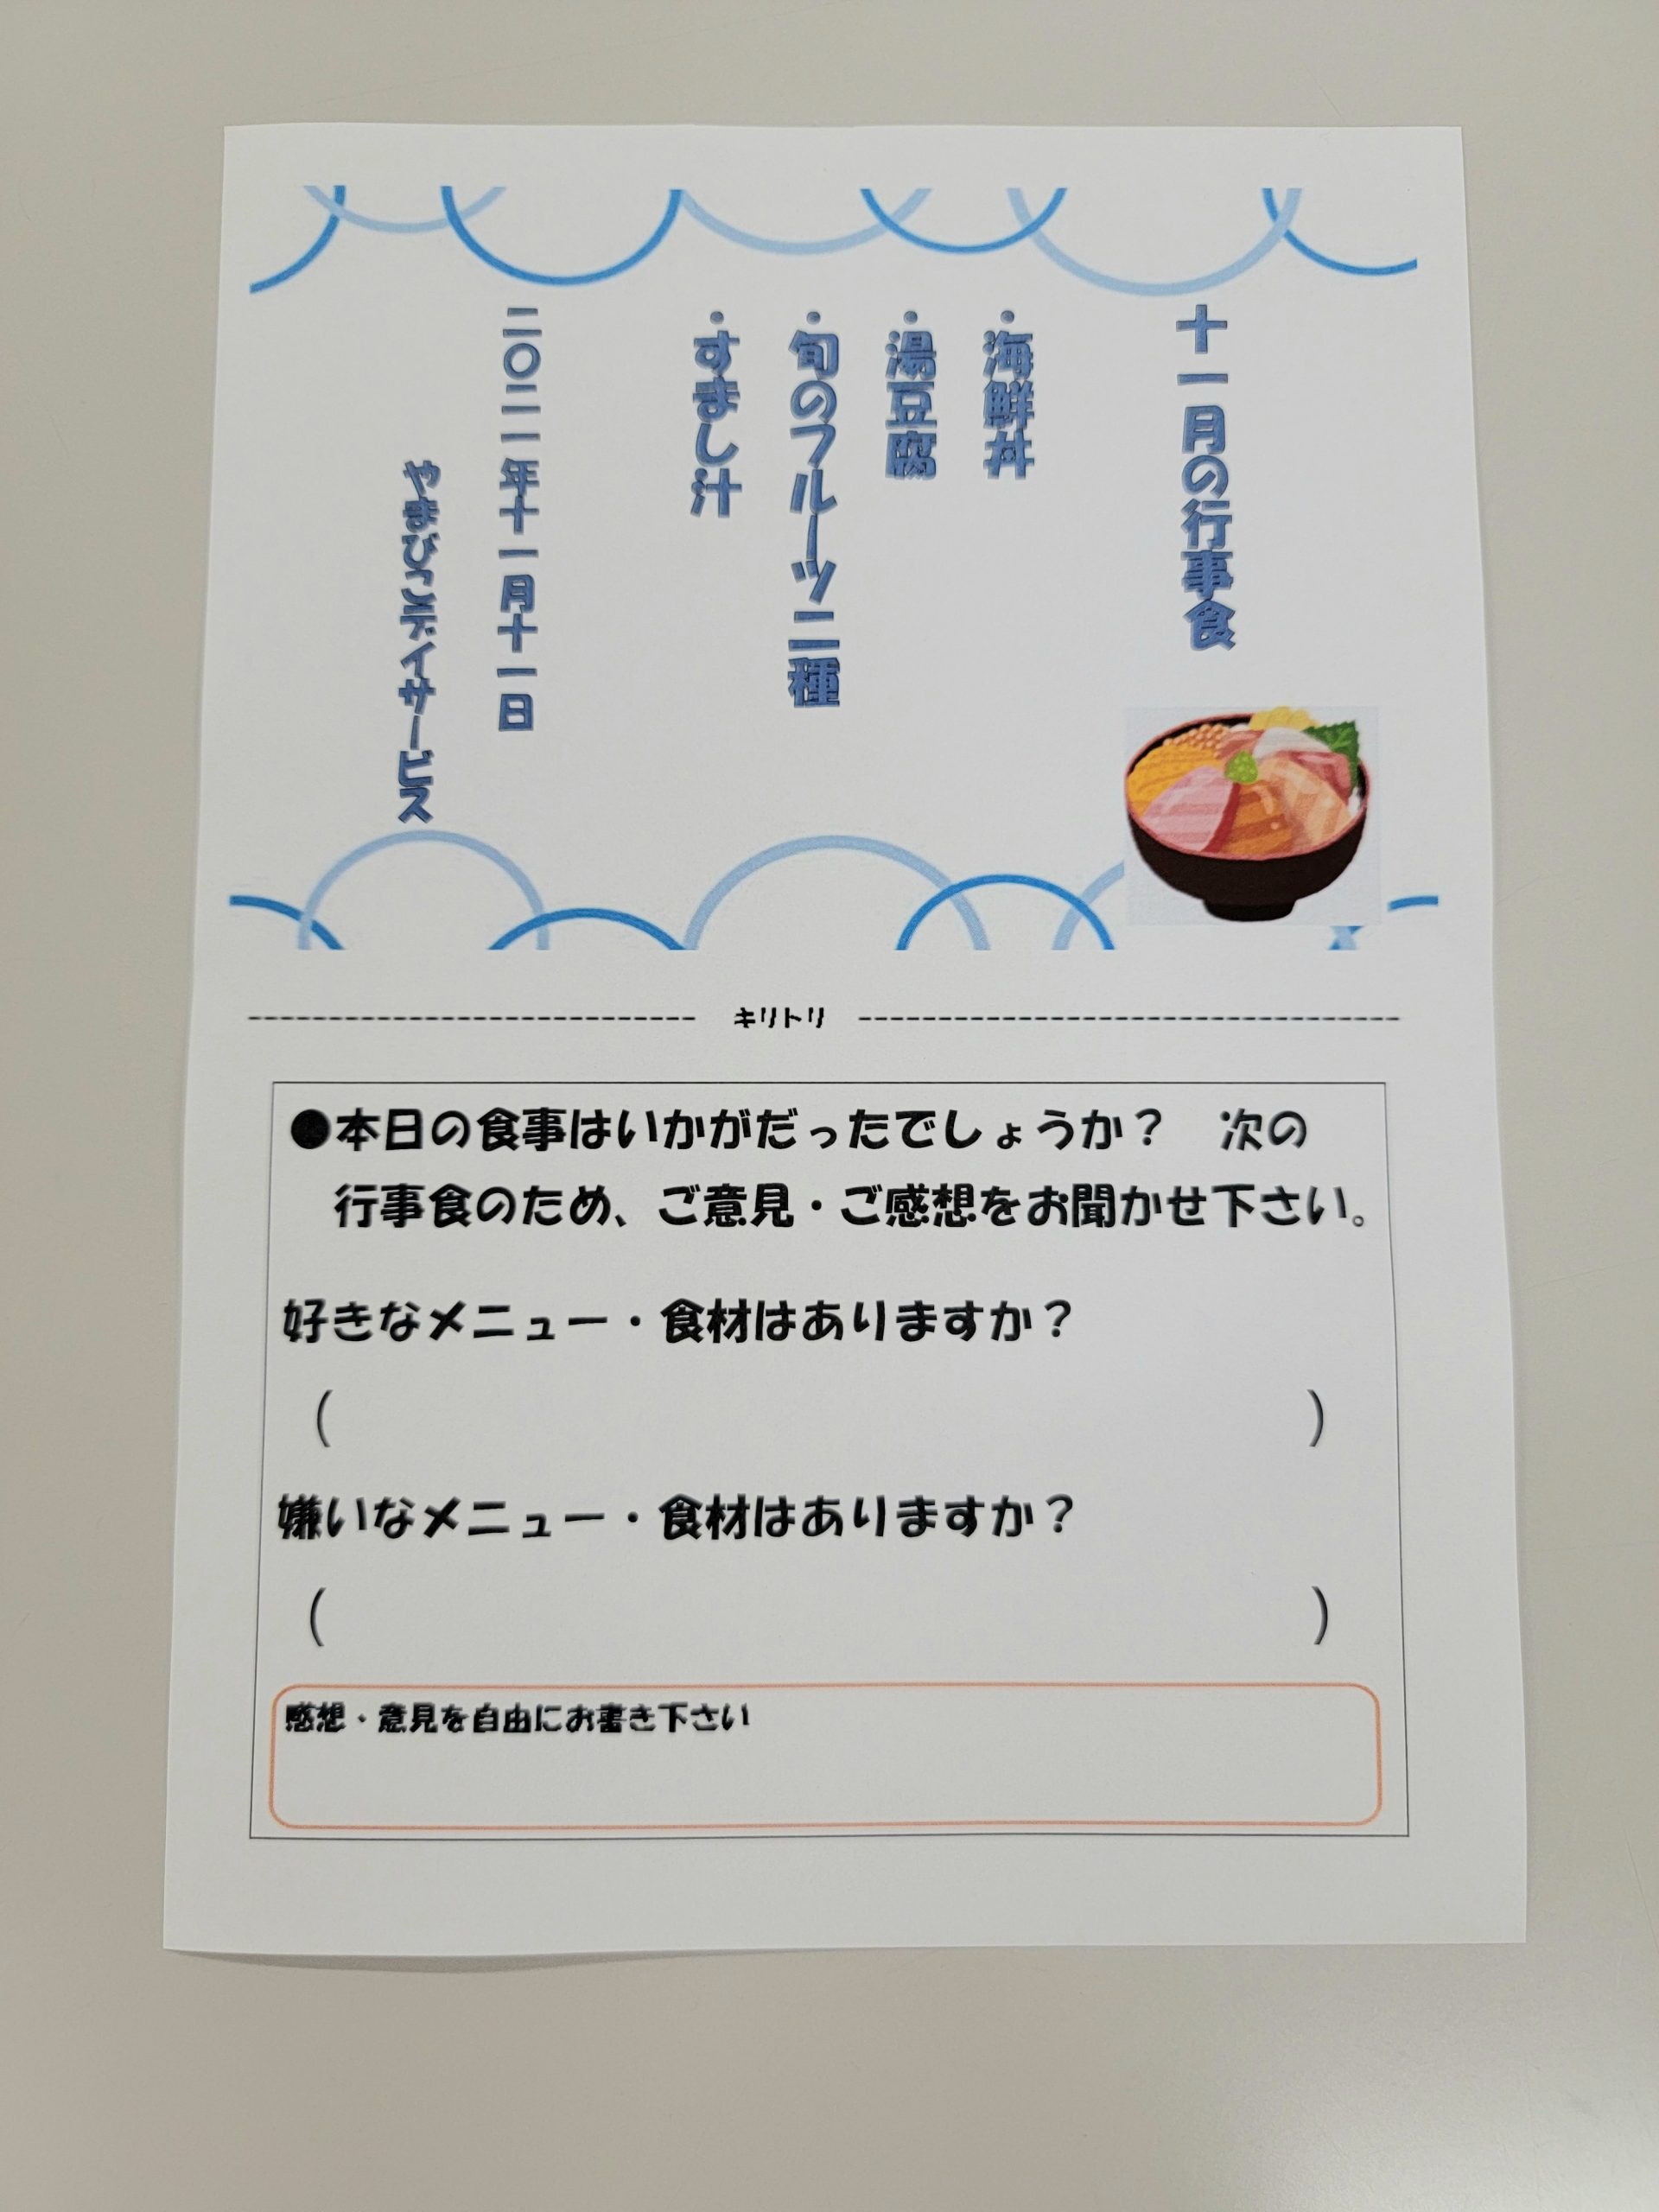 十一月の行事食
・海鮮丼
・湯豆腐
・旬のフルーツ二種
・すまし汁
二〇二一年十一月十一日
やまびこデイサービス
キリトリ
●本日の食事はいかがだったでしょうか？　次の
行事食のため、ご意見・ご感想をお聞かせ下さい。
好きなメニュー・食材はありますか？
（　　　　　　　　　　　　　　　　　　　　　）
嫌いなメニュー・食材はありますか？
（　　　　　　　　　　　　　　　　　　　　　）
感想・意見を自由にお書き下さい